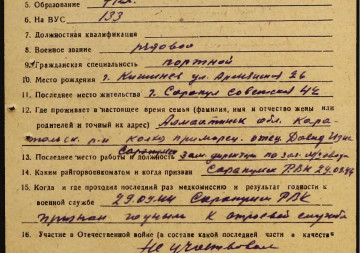 5. Образование 7 кл.
6. На ВУС 133
7. Должностная квалификация
8. Военное звание рядовой
9. Гражданская специальность портной
10. Место рождения г. Кишинев ул. Армянская 26
11. Последнее место жительства г. Сарапул Советская 42
12. Где проживает в настоящее время семья (фамилия, имя и отчество жены или
родителей и точный их адрес) Алмаатинск. обл. Кара-
р-н колх. отец Давид
13. Последнее место работы и должность зам. директ.
14. Каким райгорвоенкоматом и когда призван Сарапульск РВК 29.03.44
15. Когда и где проходил последний раз медкомиссию и результат годности к
военной службе 29.03.44 Сарапульск РВК
признан годным к строевой службе
16. Участие в Отечественной войне (в составе какой последней части и качестве
Не участвовал